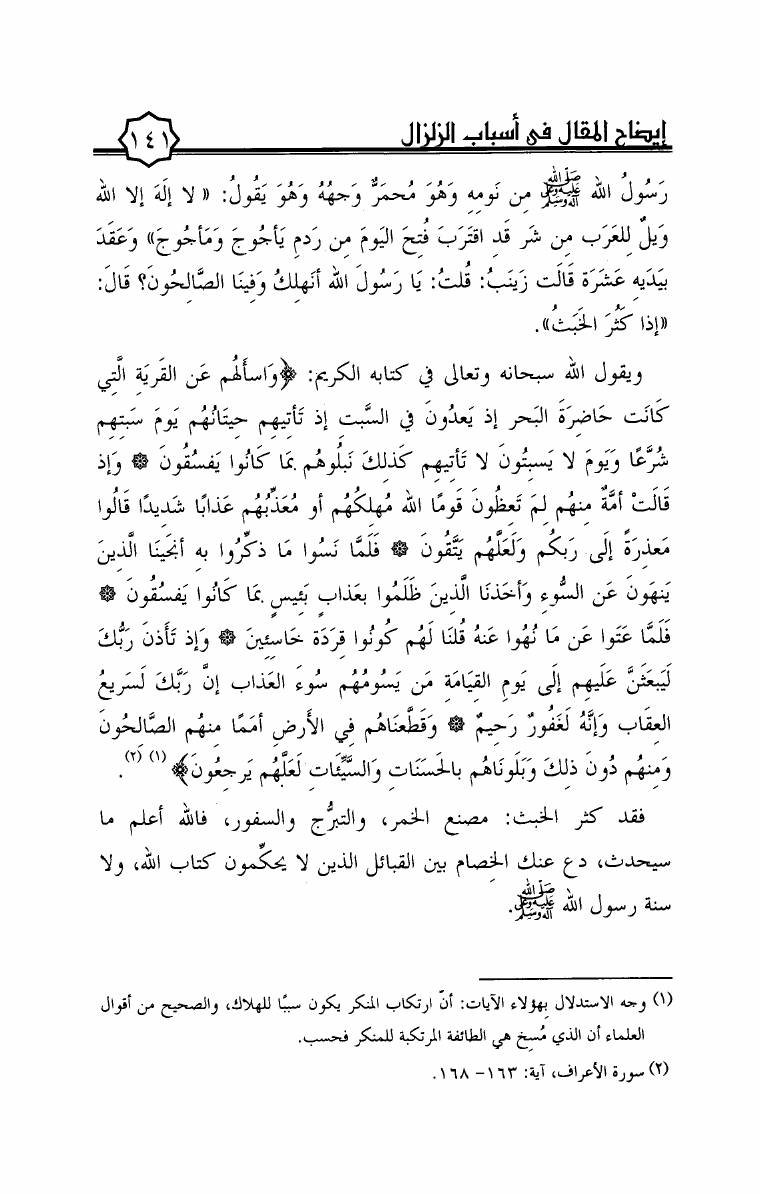 إيضاح المقال في أسباب الزلزال
١٤١
رَسُولُ الله ﷺ مِن نَومِهِ وَهُوَ مُحمَرٌّ وَجهُهُ وَهُوَ يَقُولُ: « لا إِلَهَ إلا الله
وَيلٌ لِلعَرَبِ مِن شَرٍ قَدِ اقتَرَبَ فُتِحَ اليَومَ مِن رَدمِ يَأجُوجَ وَمَأجُوجَ» وَعَقَدَ
بِيَدَيهِ عَشَرَة قَالَت زَينَبُ: قُلتُ: يَا رَسُولَ الله أنَهلِكُ وَفِينَا الصَّالِحُونَ؟ قَالَ:
«إذا كَثُرَ الخَبَثُ».
ويقول الله سبحانه وتعالى في كتابه الكريم: ﴿وَاسأَلهُم عَنِ القَريَةِ الَّتِي
كَانَت حَاضِرَةَ البَحرِ إذ يَعدُونَ في السَّبتِ إذ تَأتِيهِم حِيتَانُهُم يَومَ سَبتِهِم
شُرَّعًا وَيَومَ لا يَسبِتُونَ لا تَأتِيهِم كَذلِكَ نَبلُوهُم بِمَا كَانُوا يَفسُقُونَ ۞ وَإذ
قَالَتْ أُمَّةٌ مِنهُم لِمَ تَعِظُونَ قَومًا الله مُهلِكُهُم أو مُعَذِّبُهُم عَذابًا شَدِيدًا قَالُوا
مَعذِرَةً إلَى رَبِكُم وَلَعَلَّهُم يَتَّقُونَ ۞ فَلَمَّا نَسُوا مَا ذُكِّرُوا بِهِ أنجَينَا الَّذِينَ
يَنهَونَ عَنِ السُّوءِ وَأَخَذنَا الَّذِينَ ظَلَمُوا بِعَذابٍ بَئِيسٍ بِمَا كَانُوا يَفسُقُونَ ۞
فَلَمَّا عَتَوا عَن مَا نُهُوا عَنهُ قُلنَا لَهُم كُونُوا قِرَدَة خَاسِئِينَ ۞ وَإذ تَأَذنَ رَبُّكَ
لَيَبعَثَنَّ عَلَيهِم إلَى يَومِ القِيَامَةِ مَن يَسُومُهُم سُوءَ العَذابِ إنَّ رَبَّكَ لَسَرِيعُ
العِقَابِ وَإنَّهُ لَغَفُورٌ رَحِيمٌ ۞ وَقَطَّعنَاهُم فِي الأَرضِ أمَمًا مِنهُم الصَّالِحُونَ
وَمِنهُم دُونَ ذلِكَ وَبَلَونَاهُم بِالحَسَنَاتِ وَالسَّيِّئَاتِ لَعَلَّهُم يَرجِعُونَ﴾ (١) (٢).
فقد كثر الخبث: مصنع الخمر، والتبرُّج والسفور، فالله أعلم ما
سيحدث، دع عنك الخِصام بين القبائل الذين لا يحكِّمون كتاب الله، ولا
سنة رسول الله ﷺ.
(١) وجه الاستدلال بهؤلاء الآيات: أنّ ارتكاب المنكر يكون سببًا للهلاك، والصحيح من أقوال
العلماء أن الذي مُسِخ هي الطائفة المرتكبة للمنكر فحسب.
(٢) سورة الأعراف، آية: ١٦٣- ١٦٨.